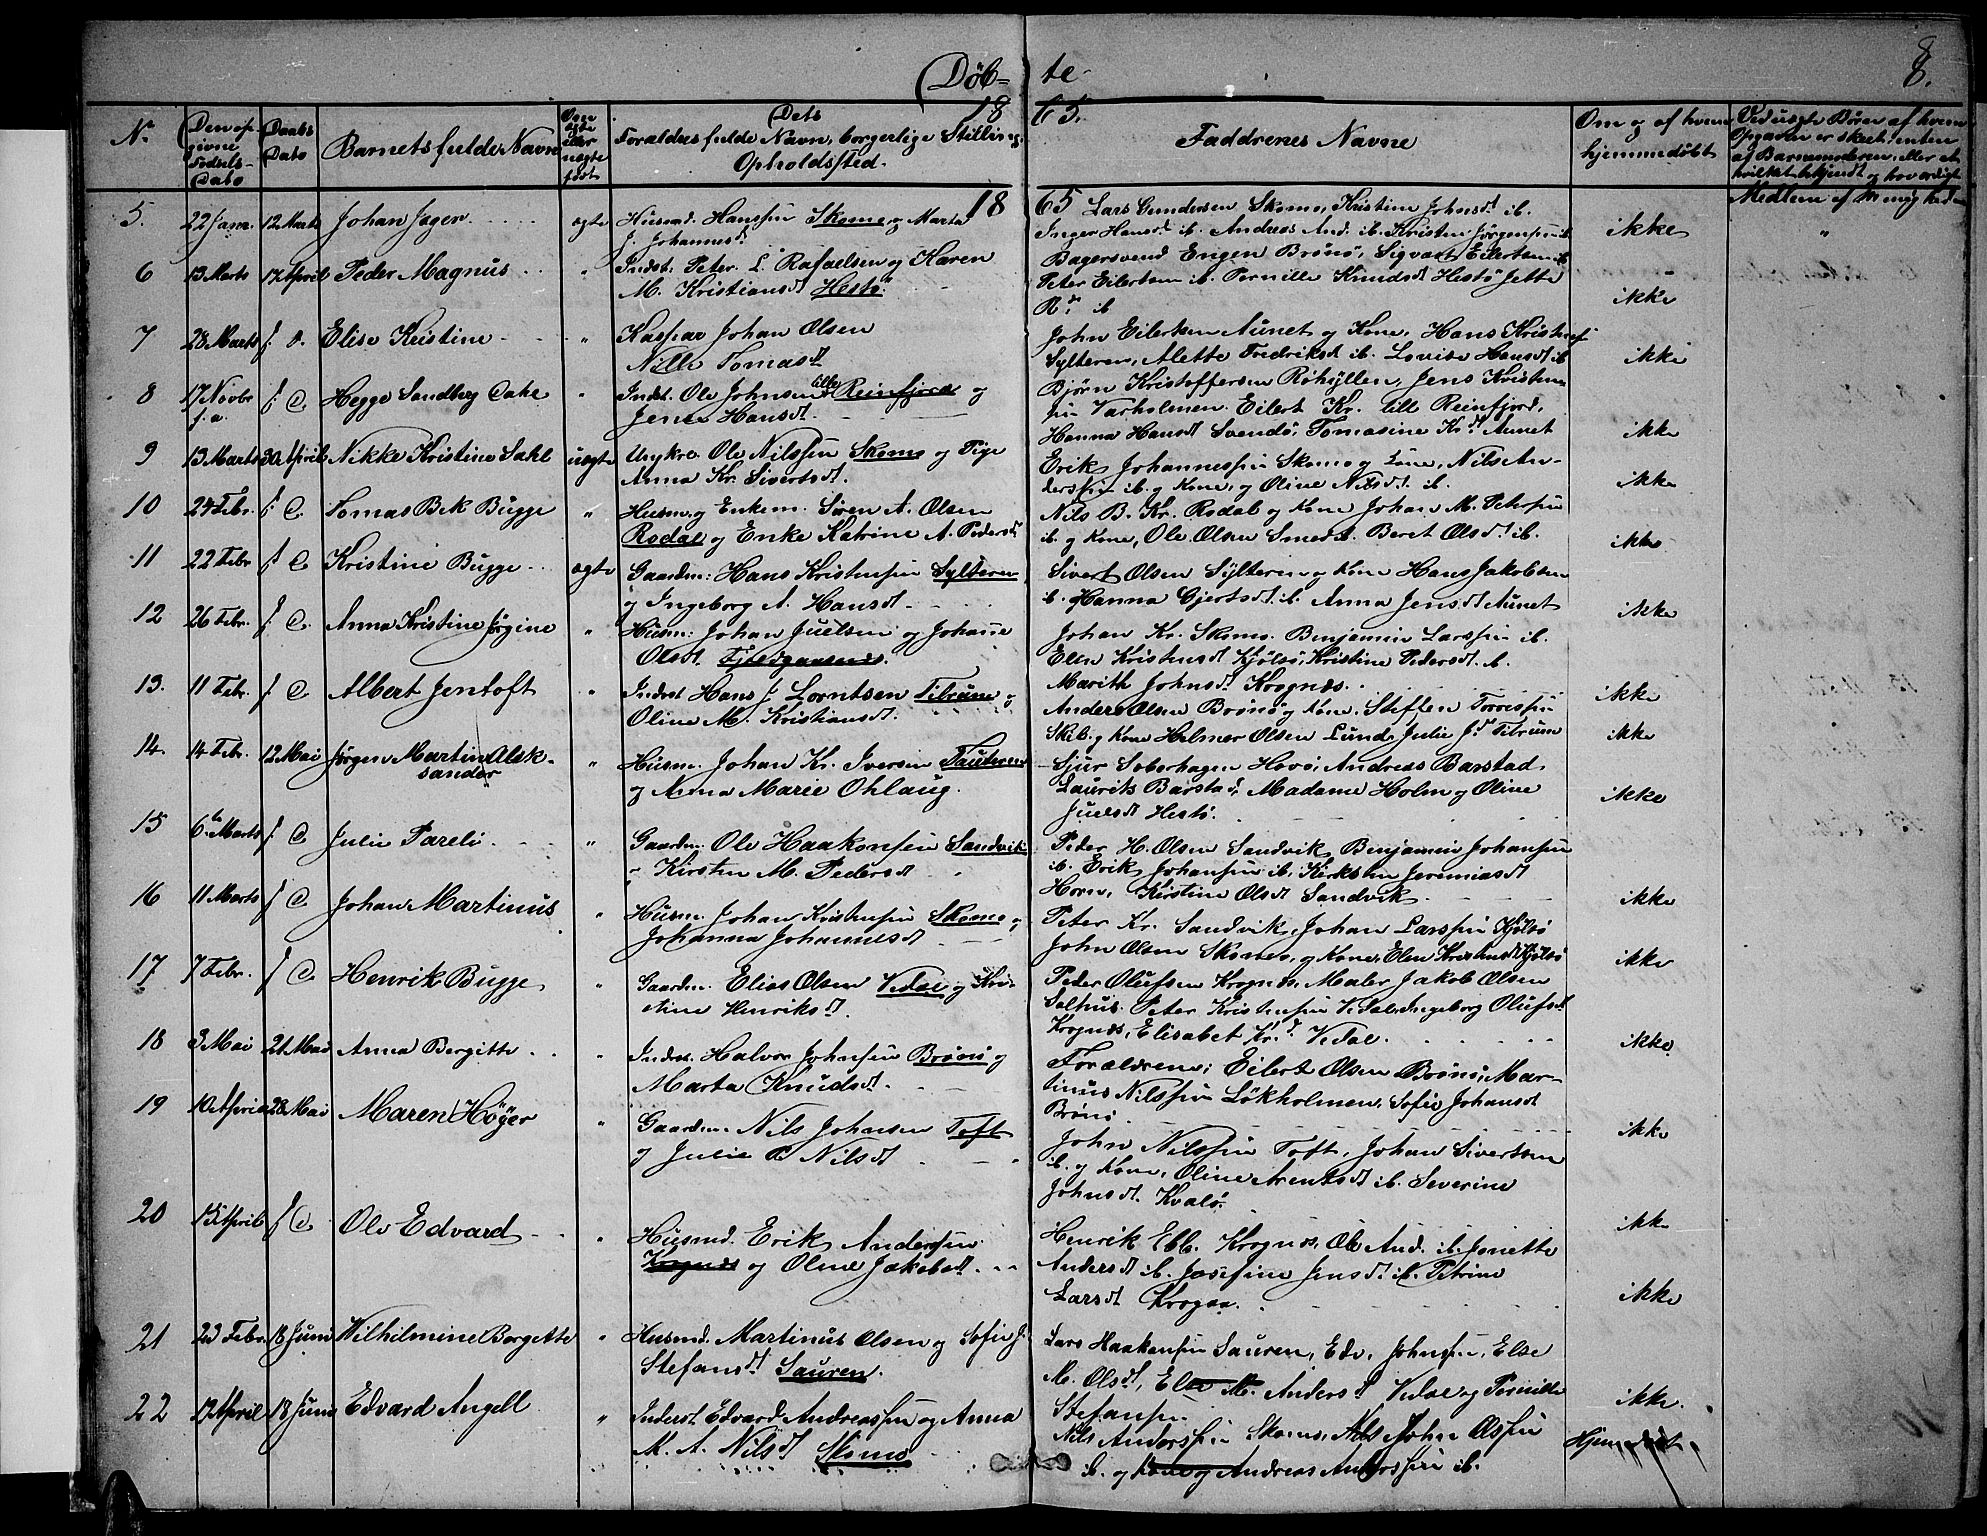 Døb- te 8.
1865.
No
Den opgivne Fødsels-Dato
Daabs Dato
Barnets fulde Navn
Om ægte eller uægte født
Dets Forældres fulde Navn, borgerlige Stilling, Opholdssted.
Faddrenes Navne
Om og af hvem hjemmedøbt
Ved uægte Børn af hvem Opgaven er skeet, enten af Barnemoderen eller et
Medlem af Menigheden
1865
5. 22 Janr. 12 Marts Johan Jager ægte Husmd. Hanssen Skomo og Marta
J. Johannesd.
Lars Gundersen Skomo, Kristine Johnsd. ib.
Inger Hansd. ib. Andreas And. ib. Kristen Jørgensen ib.
ikke "
6 13 Marts 17 April Peder Magnus " Indst. Peter L. Rafaelsen og Karen
M. Kristiansd. Hestø
Bagersvend Engen Brønø, Sigvart Eilertsen ib
Peter Eilertsen ib. Pernille Knudsd. Hestø Jette
R. ib
ikke
7 28 Marts f. o. Elise Kristine " Kaspar Johan Olsen
Nille Tomasd.
John Eilertsen Aunet og Kone, Hans Kristensen
Sylteren, Alette Fredriksd. ib. Lovise Hansd. ib
ikke
8 17 Novbr f.a. f. d. Hegge Sandberg Dahl " Indst. Ole Johnsen lille Reinfjord og
Jensine Hansd.
Bjørn Kristoffersen Røhyllen, Jens Kristen-
sen Varholmen, Eilert Kr. lill Reinfjord,
Hanna Hansd. Svendsø, Tomasine Kr.d. Aunet
ikke
9 13 Marts 30 April Nikke Kristine Dahl uægte Ungkrl. Ole Nilssen Skomo og Pige
Anna Kr. Sivertsd.
Erik Johannessen Skomo og Kone, Nils An-
derssen ib. og Kone, og Oline Nilsd. ib.
ikke
10 24 Febr. f. d. Tomas Bek Bugge " Husm. og Enkem. Søren A. Olsen
Rodal og Enke Katrine A. Pedersd.
Nils B. Kr. Rodal og Kone Johan M. Petersen
ib. og Kone, Ole Olsen Smeds. Beret Olsd. ib.
ikke
11 22 Febr f. d. Kristine Bugge ægte Gaardm: Hans Kristensen Sylteren
og Ingeborg A. Hansd.
Sivert Olsen Sylteren og Kone Hans Jakobsen
ib. Hanna Gjertsd. ib. Anna Jensd. Aunet
ikke
12 26 Febr. f. d. Anna Kristine Jørgine " Husm: Johan Juelsen og Johanne
Olsd. Fjeldgaasnes.
Johan Kr. Skomo. Benjamin Larssen ib.
Elen Kristensd. Kjølsø, Kristine Pedersd. ib.
Marith Johnsd. Krognæs.
ikke
13. 11 Febr. f. d. Albert Jentoft " Indst Hans J. Lorntsen Tilrum og
Oline M. Kristiansd.
Anders Olsen Brønø og Kone, Stiffen Torrissen
Skib. og Kone Helmer Olsen Lund, Julie J.d. Tilrum
ikke
14. 14 Febr. 12 Mai Jørgen Martin Alek-
sander
" Husm. Johan Kr. Iversen Sauteren
og Anna Marie Ohlaug.
Sjur Soberhagen Havø, Andreas Barstad
Laurits Barstad, Madame Holm og Oline
Juelsd Hestø.
ikke
15 6te Marts f. d. Julie Pareli " Gaardm. Ole Haakonsen Sandvik
Kirsten M. Pedersd.
Peder H. Olsen Sandvik, Benjamin Johansen
ib. Erik Johansen ib. Kirksten Jeremiasd
Horn, Kirstine Olsd Sandvik
ikke
16 11 Marts f. d. Johan Martinus " Husm. Johan Kristensen Skomo og
Johanna Johannesd.
Peter Kr. Sandvik, Johan Larssen Kjølsø
John Olsen Skomo, og Kone, Elen Kristensd. Kjølsø
ikke
17 7 Febr. f. d. Henrik Bugge " Gaardm. Elias Olsen Vedal og Kri-
stine Henriksd.
Peder Olufsen Krognæs, Maler Jakob Olsen
Salhus. Peter Kristensen Vedal, Ingeborg Olufsd
Krognæs, Elisabet Kr.d. Vedal.
ikke
18 3 Mai 21 Mai Anna Bergitte " Indst. Halvor Johnsen Brønø og
Marta Knudsd.
Forældrene, Eilert Olsen Brønø, Mar-
tinus Nilssen Løkholmen, Sofie Johansd
Brønø
ikke
19 10 April 28 Mai Maren Høyer " Gaardm. Nils Johnsen Toft
og Julie P. Nilsd.
John Nilssen Toft, Johan Sivertsen
ib. og Kone, Oline Arentsd. ib. Severine
Johnsd. Kvalø.
ikke
20 15 April f. d. Ole Edvard " Husmd. Erik Anderssen
Krognæs og Oline Jakobsd.
Henrik Ebb. Krognæs, Ole And. ib. Jonette
Andersd ib. Josefine Jensd. ib. Petrine
Larsd Krogaa.
ikke
21 23 Febr. 18 Juni Vilhilmine Borgette " Husmd. Martinus Olsen og Sofie J.
Stefansd. Sauren.
Lars Haakensen Sauren, Edv. Johnssen, Else
M. Olsd., Else M. Andersd. Vedal og Pernille
Stefansen.
ikke.
22 17 April 18 Juni Edvard Angell " Inderst. Edvard Andreassen og Anna
M. A. Nilsd. Skomo
Nils Anderssen Skomo, Nils John Olssen
ib. og Kone og Andreas Anderssen ib.
Hjemmedøbt